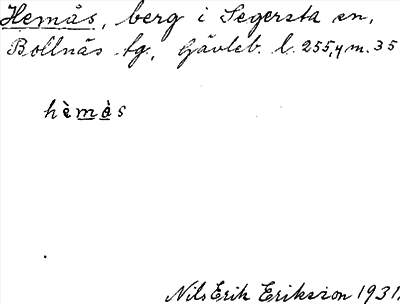 Hemås, berg i Segersta sn,
Bollnäs tg., Gävleb. l. 255,4 m. 35
hè̀màs
Nils Erik Eriksson 1931.